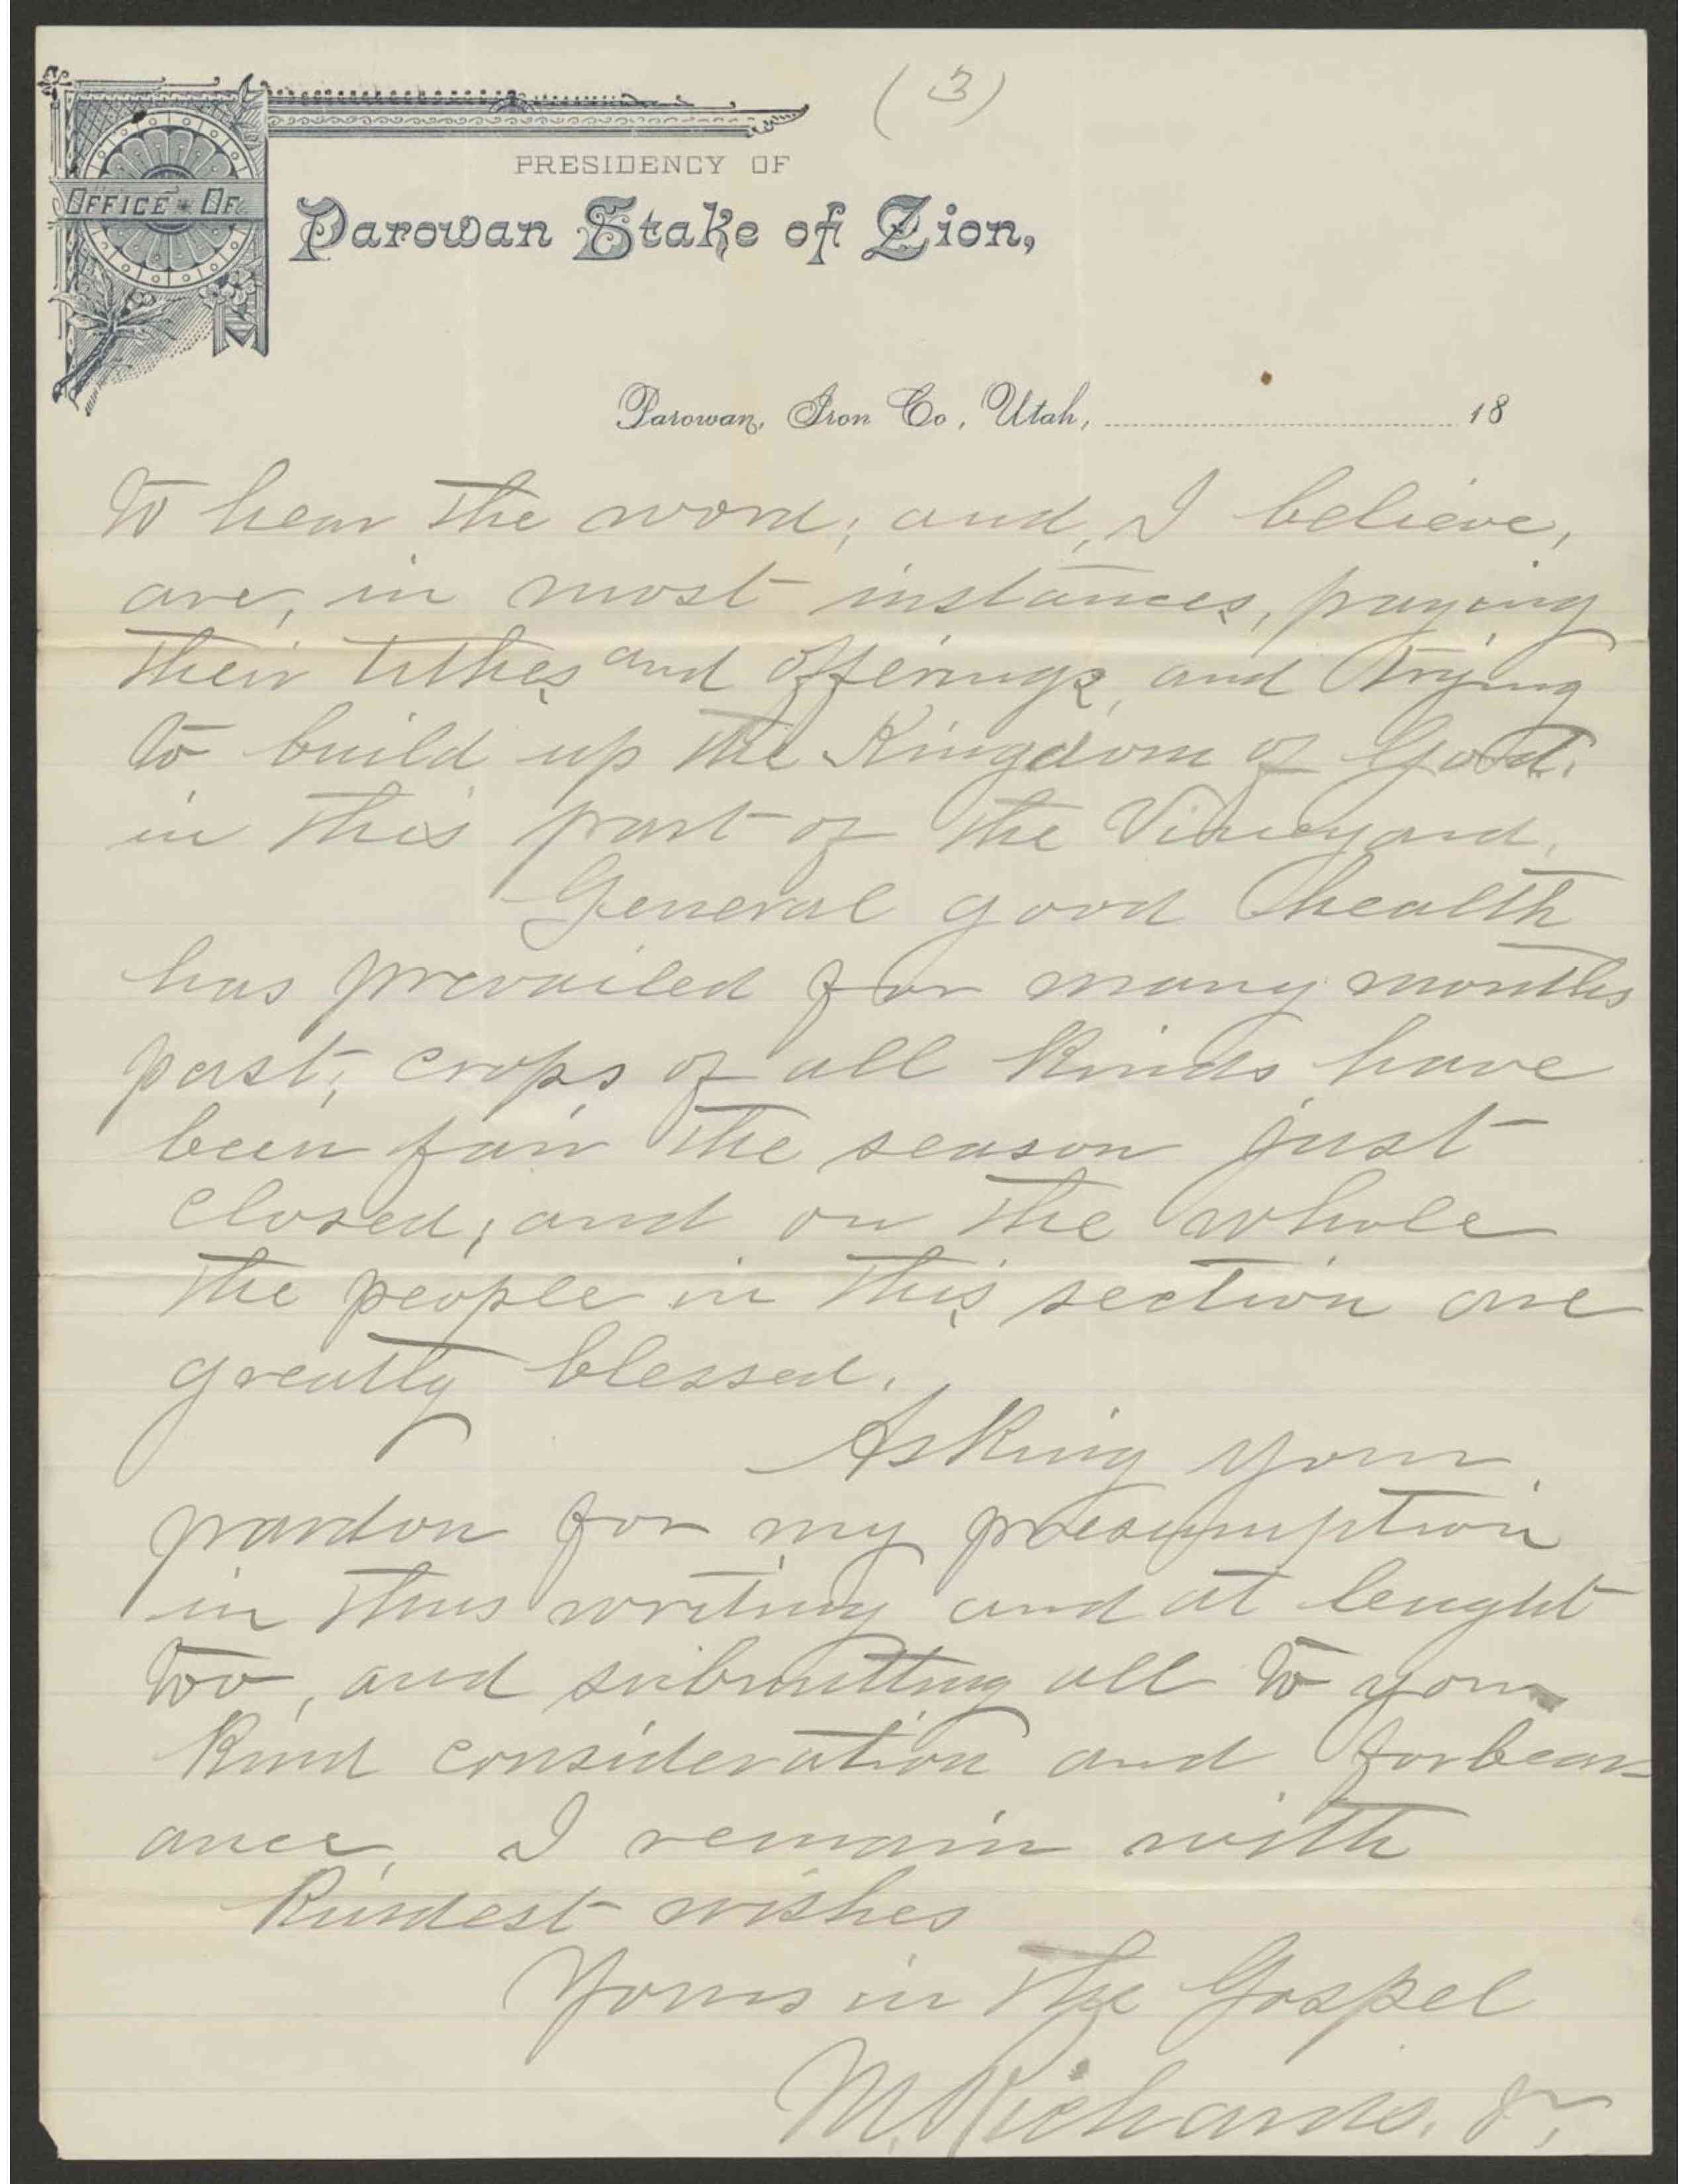 (3)
OFFICE OF
PRESIDENCY OF
Parowan Stake of Zion,
Parowan, Iron Co., Utah, 18
to hear the word; and, I believe,
are, in most instances, paying
their tithes and offerings, and trying
to build up the Kingdom of God.
in this part of the Vineyard.
General good health
has prevailed for many months
past; crops of all kinds have
been fair the season just
closed; and on the whole
the people in this section are
greatly blessed.
Asking your
pardon for my presumption
in thus writing and at lenght
too, and submitting all to your
kind consideration and forbear-
ance, I remain with
Kindest wishes
Yours in the Gospel
M. Richards. Jr.